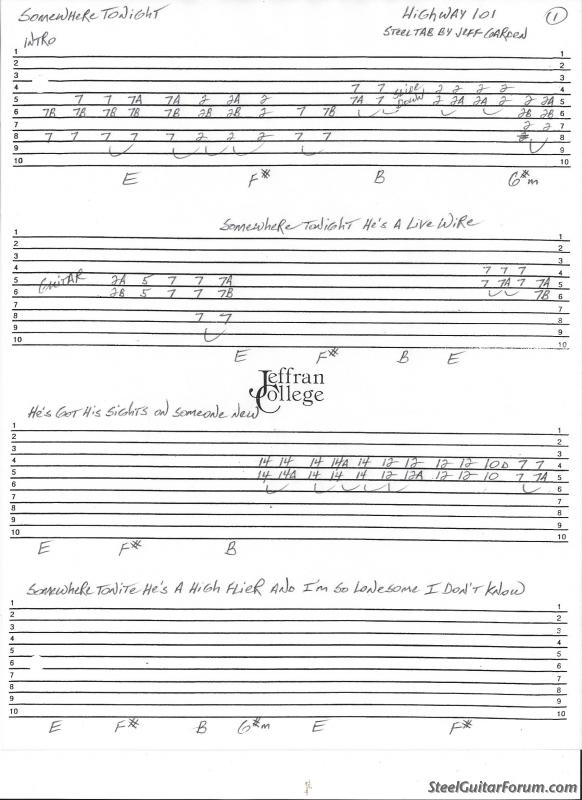 Somewhere Tonight
Highway 101
1
Intro
Steel Tab By Jeff Garden
1 1
2 2
3 3
4 7 7 Slide 2 2 2 2 4
5 7 7 7A 7A 2 2A 2 7A 7 Down 2 2A 2A 2 2 2A 5
6 7B 7B 7B 7B 7B 2B 2B 2 7 7B 2B 2B 6
7 2 2 7
8 7 7 7 7 7 2 2 2 7 7 8
9 9
10 10
E F# B G#m
Somewhere Tonight He's A Live Wire
1 1
2 2
3 3
4 7 7 7 4
5 Guitar 2A 5 7 7 7A 7 7A 7 7A 5
6 2B 5 7 7 7B 7B 6
7 7
8 7 7 8
9 9
10 10
E F# B E
Jeffran
College
He's Got His Sights On Someone New
1 1
2 2
3 3
4 14 14 14 14A 14 12 12 12 12 10D 7 7 4
5 14 14A 14 14 14 12 12A 12 12 10 7 7A 5
6 6
7 7
8 8
9 9
10 10
E F# B
Somewhere Tonite He's A High Flier And I'm So Lonesome I Don't Know
1 1
2 2
3 3
4 4
5 5
6 6
7 7
8 8
9 9
10 10
E F# B G#m E F#
SteelGuitarForum.com